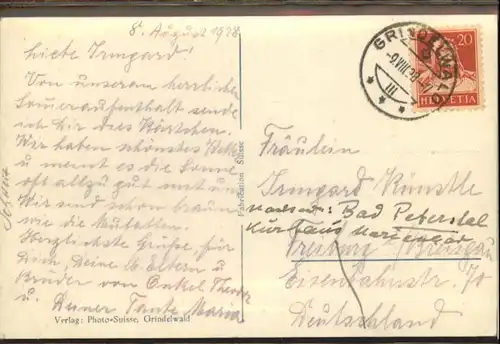 8. August 1928
Liebe Irmgard!
Von unserem herrlichen
Schweizeraufenthalt sende
ich Dir dies Kärtchen.
Wir haben schönstes Wetter
u. meint es die Sonne
oft allzu gut mit uns.
Wir sind schon braun
wie die Mulatten.
Herzlichste Grüße, für
Dich, Deine lb. Eltern u.
Brüder von Onkel Theodor
u. Deiner Tante Maria
Verlag: Photo-Suisse, Grindelwald
Fabrikation Suisse
GRINDELWALD
III
20
HELVETIA
Fräulein
Irmgard Künstle
Bad Peterstal
Kurhaus
Freiburg / Breisgau
Eisenbahnstr. 70
Deutschland